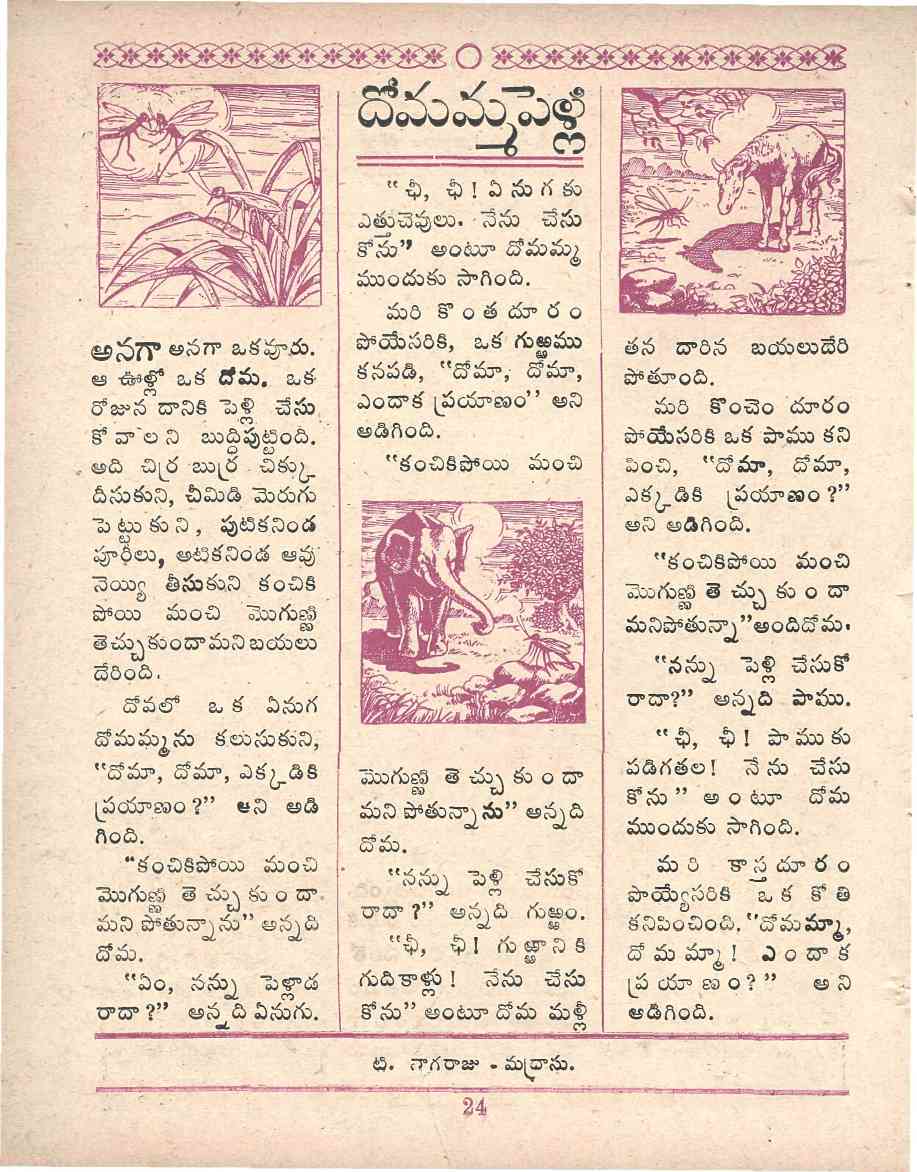 దోమమ్మపెళ్లి
అనగా అనగా ఒకవూరు.
ఆ ఊళ్లో ఒక దోమ. ఒక
రోజున దానికి పెళ్లి చేసు
కోవాలని బుద్ధిపుట్టింది.
అది చిర్ర బుర్ర చిక్కు
దీసుకుని, చీమిడి మెరుగు
పెట్టుకుని, పుటికనిండ
పూరీలు, అటికనిండ ఆవు
నెయ్యి తీసుకుని కంచికి
పోయి మంచి మొగుణ్ణి
తెచ్చుకుందామని బయలు
దేరింది.
దోవలో ఒక ఏనుగ
దోమమ్మను కలుసుకుని,
“దోమా, దోమా, ఎక్కడికి
ప్రయాణం?” అని అడి
గింది.
“కంచికిపోయి మంచి
మొగుణ్ణి తెచ్చుకుందా
మని పోతున్నాను” అన్నది
దోమ.
“ఏం, నన్ను పెళ్లాడ
రాదా?” అన్నది ఏనుగు.
“ఛీ, ఛీ! ఏనుగకు
ఎత్తుచెవులు. నేను చేసు
కోను” అంటూ దోమమ్మ
ముందుకు సాగింది.
మరి కొంతదూరం
పోయేసరికి, ఒక గుఱ్ఱము
కనపడి, “దోమా, దోమా,
ఎందాక ప్రయాణం” అని
అడిగింది.
“కంచికిపోయి మంచి
మొగుణ్ణి తెచ్చుకుందా
మని పోతున్నాను” అన్నది
దోమ.
“నన్ను పెళ్లి చేసుకో
రాదా?” అన్నది గుఱ్ఱం.
“ఛీ, ఛీ! గుఱ్ఱానికి
గుదికాళ్లు! నేను చేసు
కోను” అంటూ దోమ మళ్లీ
తన దారిన బయలుదేరి
పోతూంది.
మరి కొంచెం దూరం
పోయేసరికి ఒక పాము కని
పించి, “దోమా, దోమా,
ఎక్కడికి ప్రయాణం?”
అని అడిగింది.
“కంచికిపోయి మంచి
మొగుణ్ణి తెచ్చుకుందా
మనిపోతున్నా”అందిదోమ.
“నన్ను పెళ్లి చేసుకో
రాదా?” అన్నది పాము.
“ఛీ, ఛీ! పాముకు
పడిగతల! నేను చేసు
కోను” అంటూ దోమ
ముందుకు సాగింది.
మరి కాస్తదూరం
పొయ్యేసరికి ఒక కోతి
కనిపించింది. “దోమమ్మా,
దోమమ్మా! ఎందాక
ప్రయాణం?” అని
అడిగింది.
టి. నాగరాజు - మద్రాసు.
24